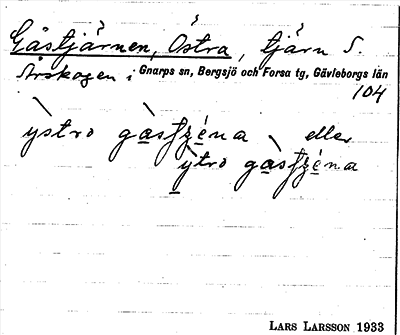 Gåstjärnen, Östra, tjärn S.
Årskogen i Gnarps sn, Bergsjö och Forsa tg, Gävleborgs län
104
ỳstro gàsʃʒéna eller
ỳtro gàsʃʒéna
LARS LARSSON 1933